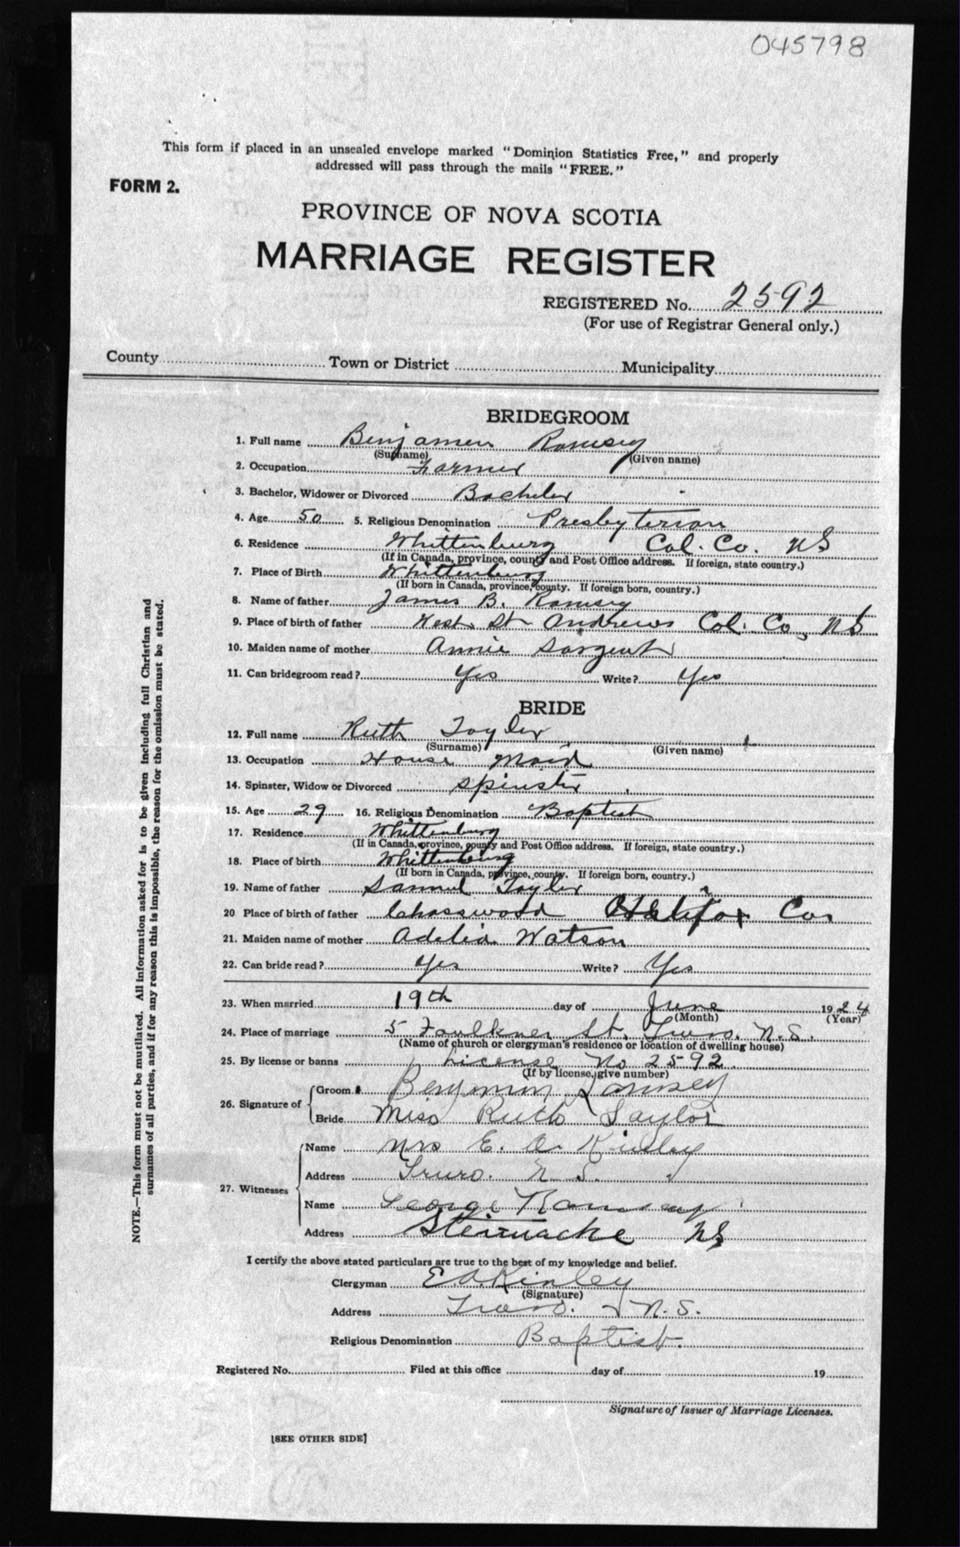 045798
This form if placed in an unsealed envelope marked "Dominion Statistics Free," and properly
addressed will pass through the mails "FREE."
FORM 2.
PROVINCE OF NOVA SCOTIA
MARRIAGE REGISTER
REGISTERED No. 2592
(For use of Registrar General only.)
County Town or District Municipality
BRIDEGROOM
1. Full name Benjamen Ramsey
(Surname) (Given name)
2. Occupation Farmer
3. Bachelor, Widower or Divorced Bacheler
4. Age 50 5. Religious Denomination Presbyterian
6. Residence Whittenburg Col. Co. NS
(If in Canada, province, county and Post Office address. If foreign, state country.)
7. Place of Birth Whittenburg
(If born in Canada, province, county. If foreign born, country.)
8. Name of father James B. Ramsey
9. Place of birth of father West St Andrews Col. Co, NS
10. Maiden name of mother Annie Sargent
11. Can bridegroom read? Yes Write? Yes
BRIDE
12. Full name Ruth Tayler
(Surname) (Given name)
13. Occupation House Maid
14. Spinster, Widow or Divorced Spinster
15. Age 29 16. Religious Denomination Baptist
17. Residence Whittenburg
(If in Canada, province, county and Post Office address. If foreign, state country.)
18. Place of birth Whittenburg
(If born in Canada, province, county. If foreign born, country.)
19. Name of father Samuel Tayler
20 Place of birth of father Chasswood Halifax Co
21. Maiden name of mother Adelia Watson
22. Can bride read? Yes Write? Yes
23. When married 19th day of June 1924
(Month) (Year)
24. Place of marriage 5 Faulkner St, Truro, N.S.
(Name of church or clergyman's residence or location of dwelling house)
25. By license or banns License No 2592
(If by license, give number)
26. Signature of Groom Benjamin Ramsey
Bride Miss Ruth Taylor
27. Witnesses Name Mrs E. A Kinley
Address Truro. N.S.
Name George Ramsay
Address Stewiacke NS
I certify the above stated particulars are true to the best of my knowledge and belief.
Clergyman E A Kinley
(Signature)
Address Truro. N.S.
Religious Denomination Baptist.
Registered No. Filed at this office day of 19
Signature of Issuer of Marriage Licenses.
[SEE OTHER SIDE]
NOTE.—This form must not be mutilated. All information asked for is to be given including full Christian and
surnames of all parties, and if for any reason this is impossible, the reason for the omission must be stated.